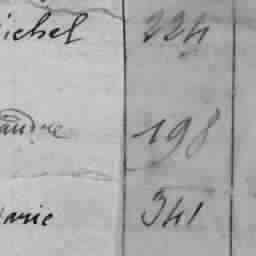 ichel 224
andre 198
arie 341